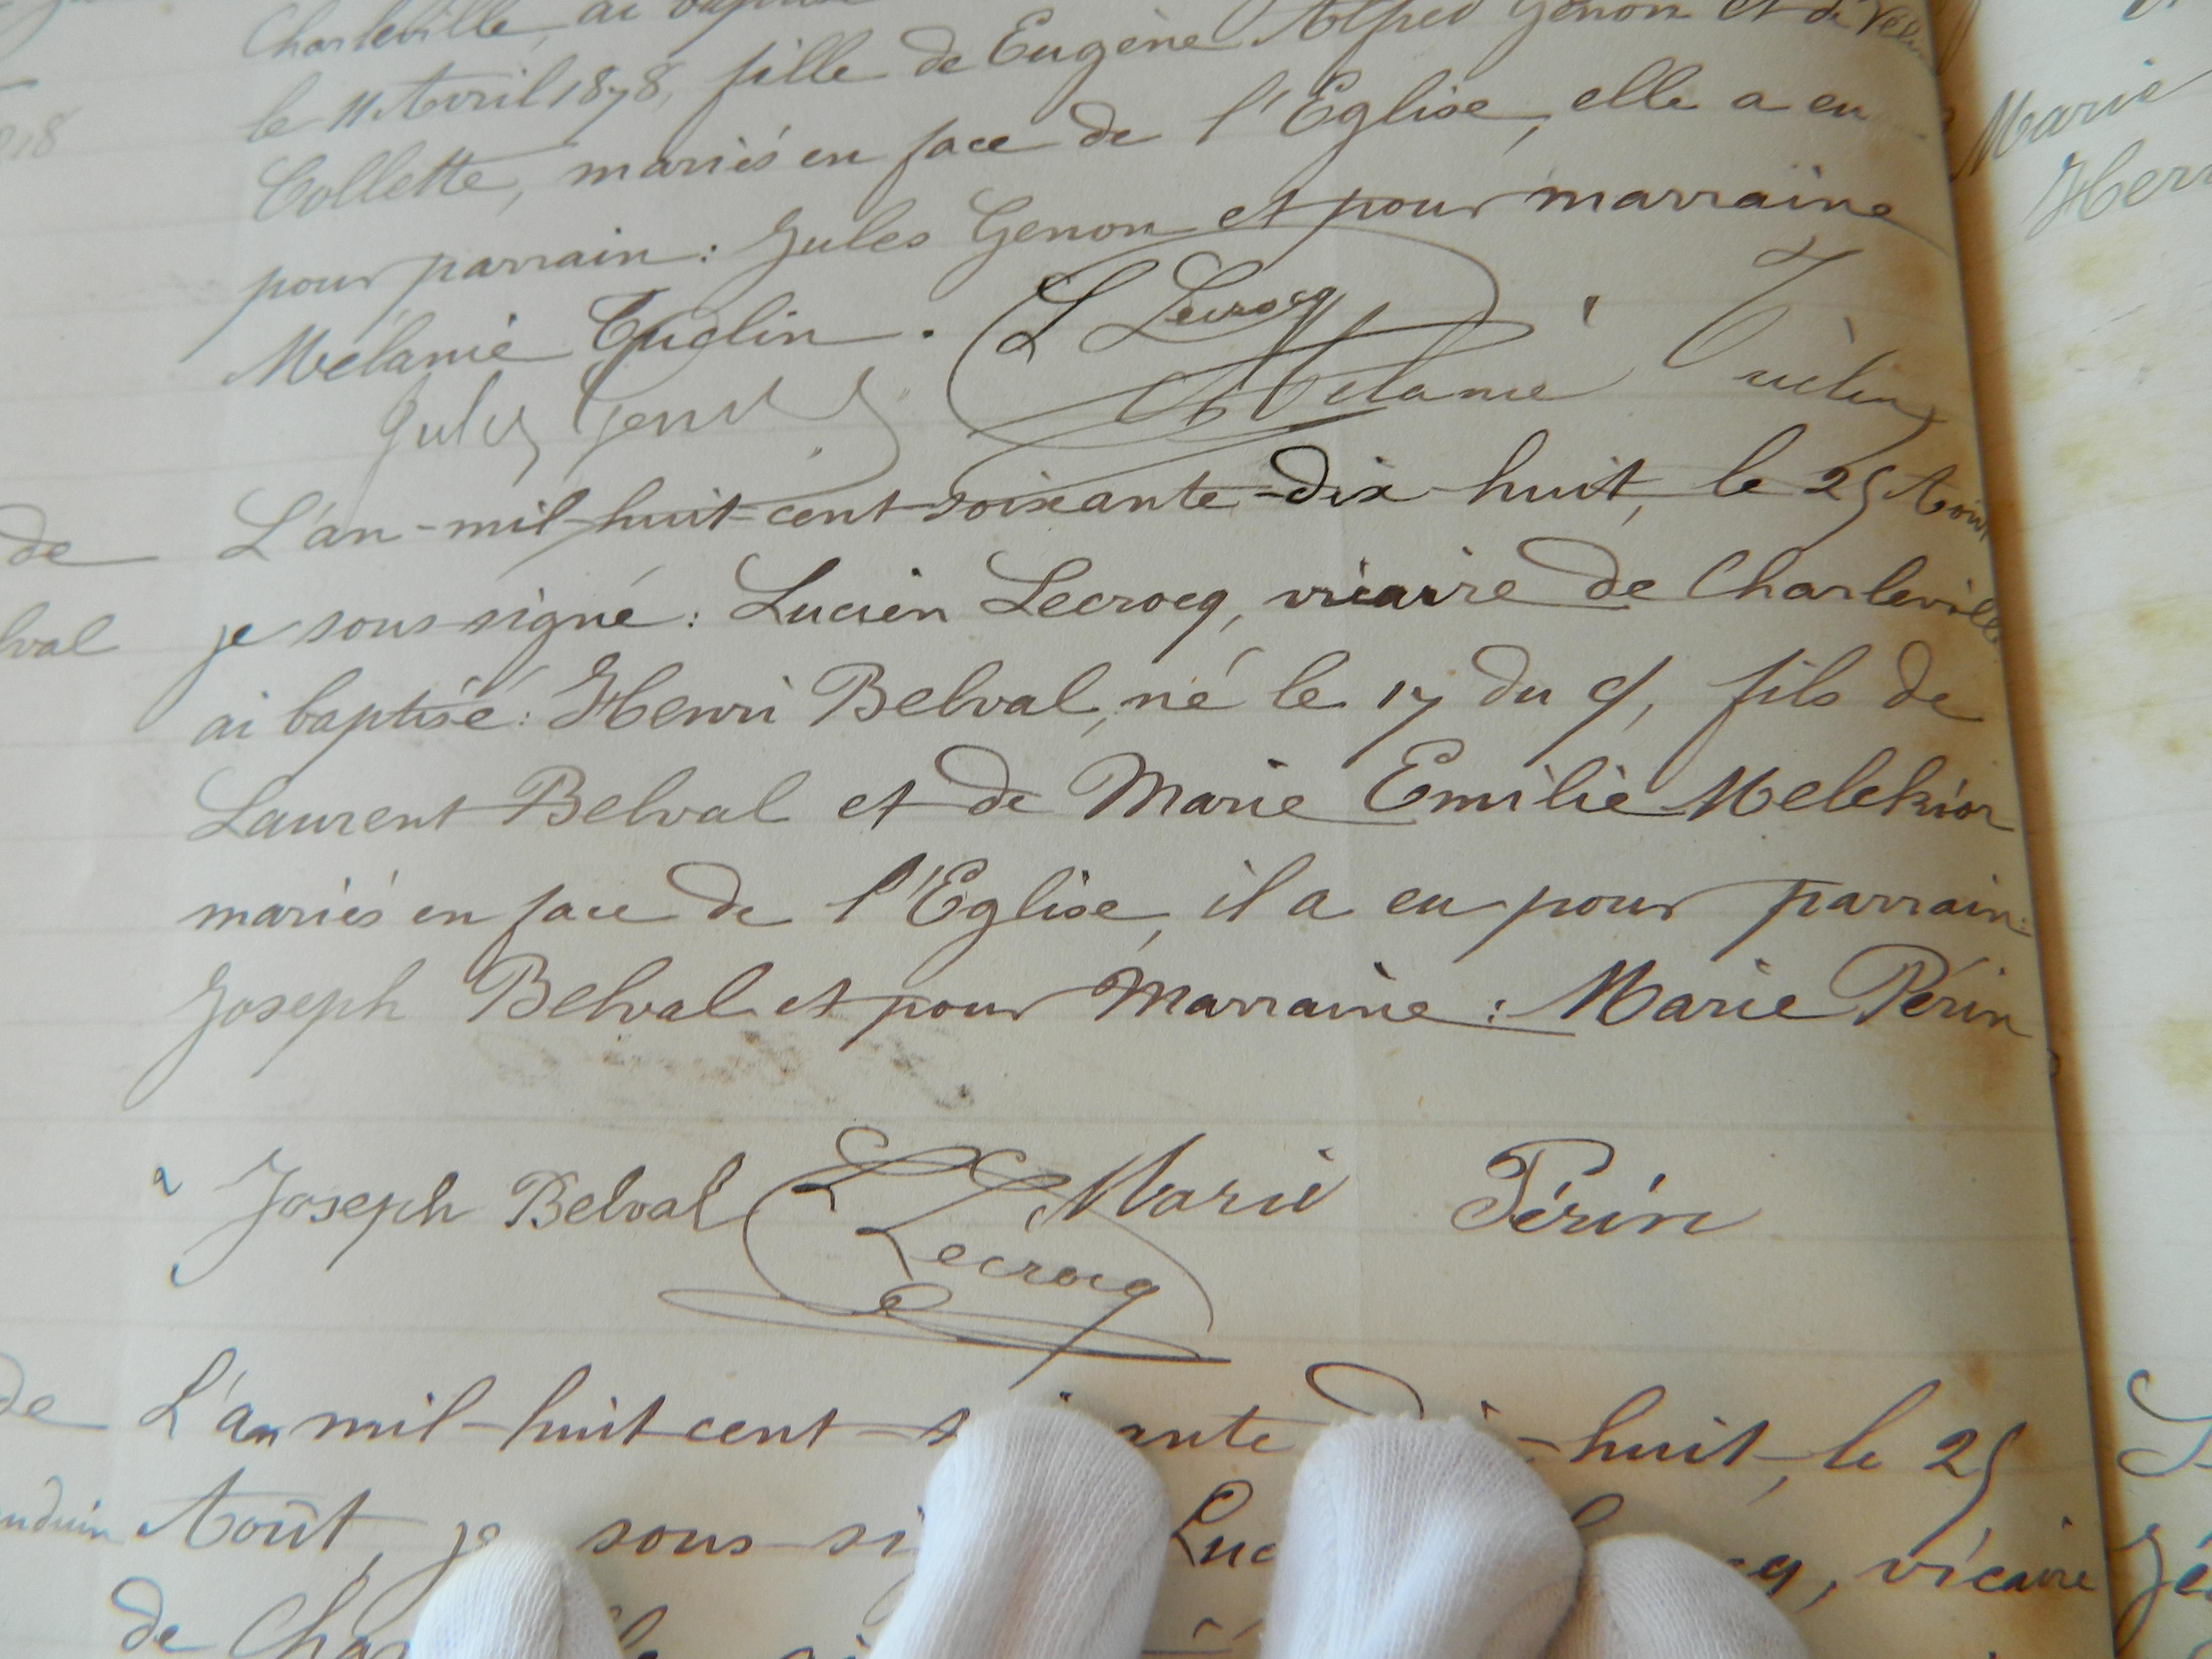 Charleville, ai
le 11 Avril 1878, fille de Eugène Alfred Genon et de
Collette, mariés en face de l'Eglise, elle a eu
pour parrain : Jules Genon et pour marraine
Mélanie Tuclin.
L Lecrocq
Jules Genon
Mélanie
L'an-mil-huit-cent-soixante-dix-huit, le 25 Août
je sous signé : Lucien Lecrocq, vicaire de Charleville
ai baptisé : Henri Belval, né le 17 du ct, fils de
Laurent Belval et de Marie Emilie Melchior
mariés en face de l'Eglise, il a eu pour parrain :
Joseph Belval et pour Marraine : Marie Périn
Joseph Belval
L Lecrocq
Marie Périn
L'an mil-huit cent-huit, le 25
Août, je sous vicaire
de
de
lval
de
Marie